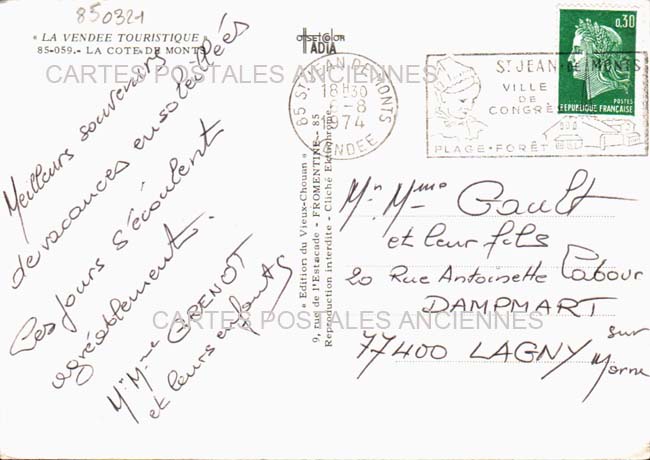 850321
« LA VENDEE TOURISTIQUE »
85-059.- LA COTE DE MONTS
CARTES POSTALES ANCIENNES
Meilleurs souvenirs
de vacances ensoleillées
Les jours s'écoulent
agréablement.
Mr Mme GRENOT
et leurs enfants
OFFSET COLOR
ADIA
85 ST JEAN DE MONTS
18H30
-8
1974
VENDEE
ST JEAN DE MONTS
VILLE
DE
CONGRÈS
PLAGE - FORÊT
0,30
POSTES
REPUBLIQUE FRANÇAISE
« Edition du Vieux-Chouan »
9, rue de l'Estacade - FROMENTINE - 85
Reproduction interdite - Cliché Ektachrome
Mr Mme Gault
et leur fils
20 Rue Antoinette Labour
DAMPMART
77400 LAGNY sur
Marne
CARTES POSTALES ANCIENNES